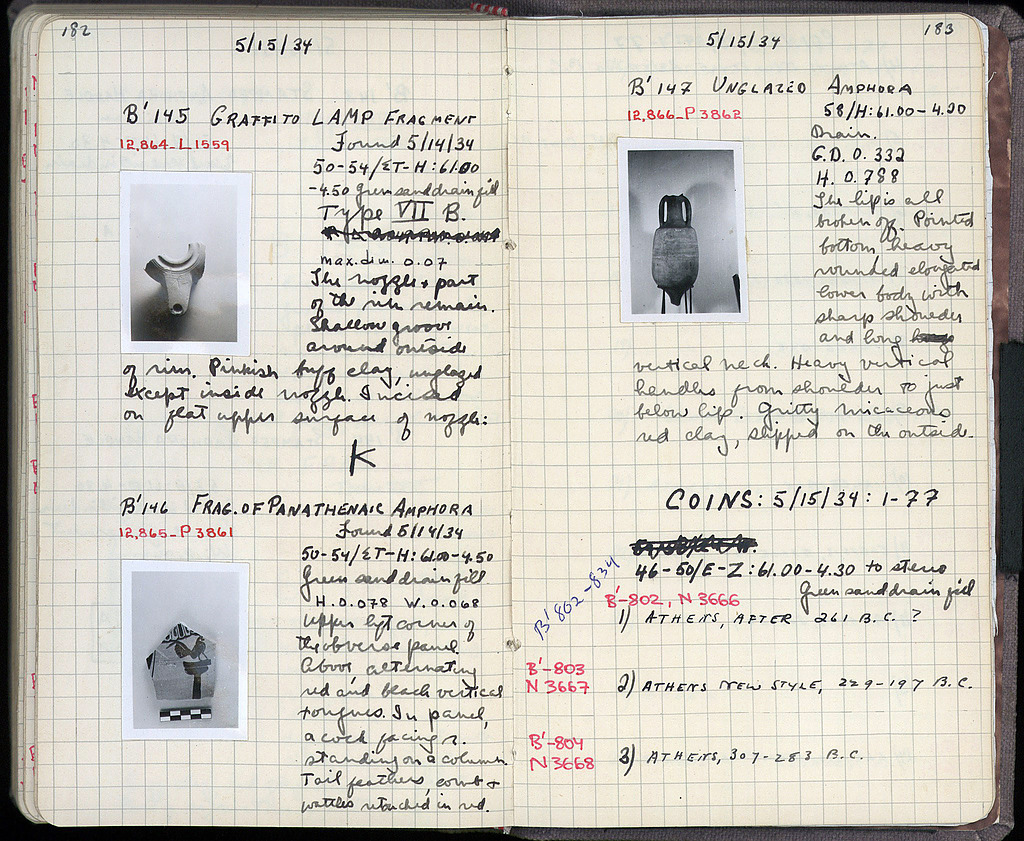 182
5/15/34
B'145 GRAFFITO LAMP FRAGMENT
12,864-L1559
Found 5/14/34
50-54/ΣT-H:61.00
-4.50 Green sand drain fill
Type VII B.
max. dim. 0.07
The nozzle + part
of the rim remain.
Shallow groove
around outside
of rim. Pinkish buff clay, unglazed
except inside nozzle. Incised
on flat upper surface of nozzle:
K
B'146 FRAG. OF PANATHENAIC AMPHORA
12,865-P3861
Found 5/14/34
50-54/ΣT-H:61.00-4.50
Green sand drain fill
H.0.078 W.0.068
Upper left corner of
the obverse panel.
Above, alternating
red and black vertical
tongues. In panel,
a cock facing r.
standing on a column.
Tail feathers, comb +
wattles retouched in red.
183
5/15/34
B'147 UNGLAZED AMPHORA
12,866-P3862
58/H:61.00-4.20
Drain.
G.D. 0.332
H. 0.788
The lip is all
broken off. Pointed
bottom, heavy
rounded elongated
lower body with
sharp shoulder
and long
vertical neck. Heavy vertical
handles from shoulder to just
below lip. Gritty micaceous
red clay, slipped on the outside.
COINS: 5/15/34: 1-77
46-50/E-Z:61.00-4.30 to stereo
Green sand drain fill
B'802-834
B'-802, N3666
1) ATHENS, AFTER 261 B.C.?
B'-803
N3667
2) ATHENS NEW STYLE, 229-197 B.C.
B'-804
N3668
3) ATHENS, 307-283 B.C.